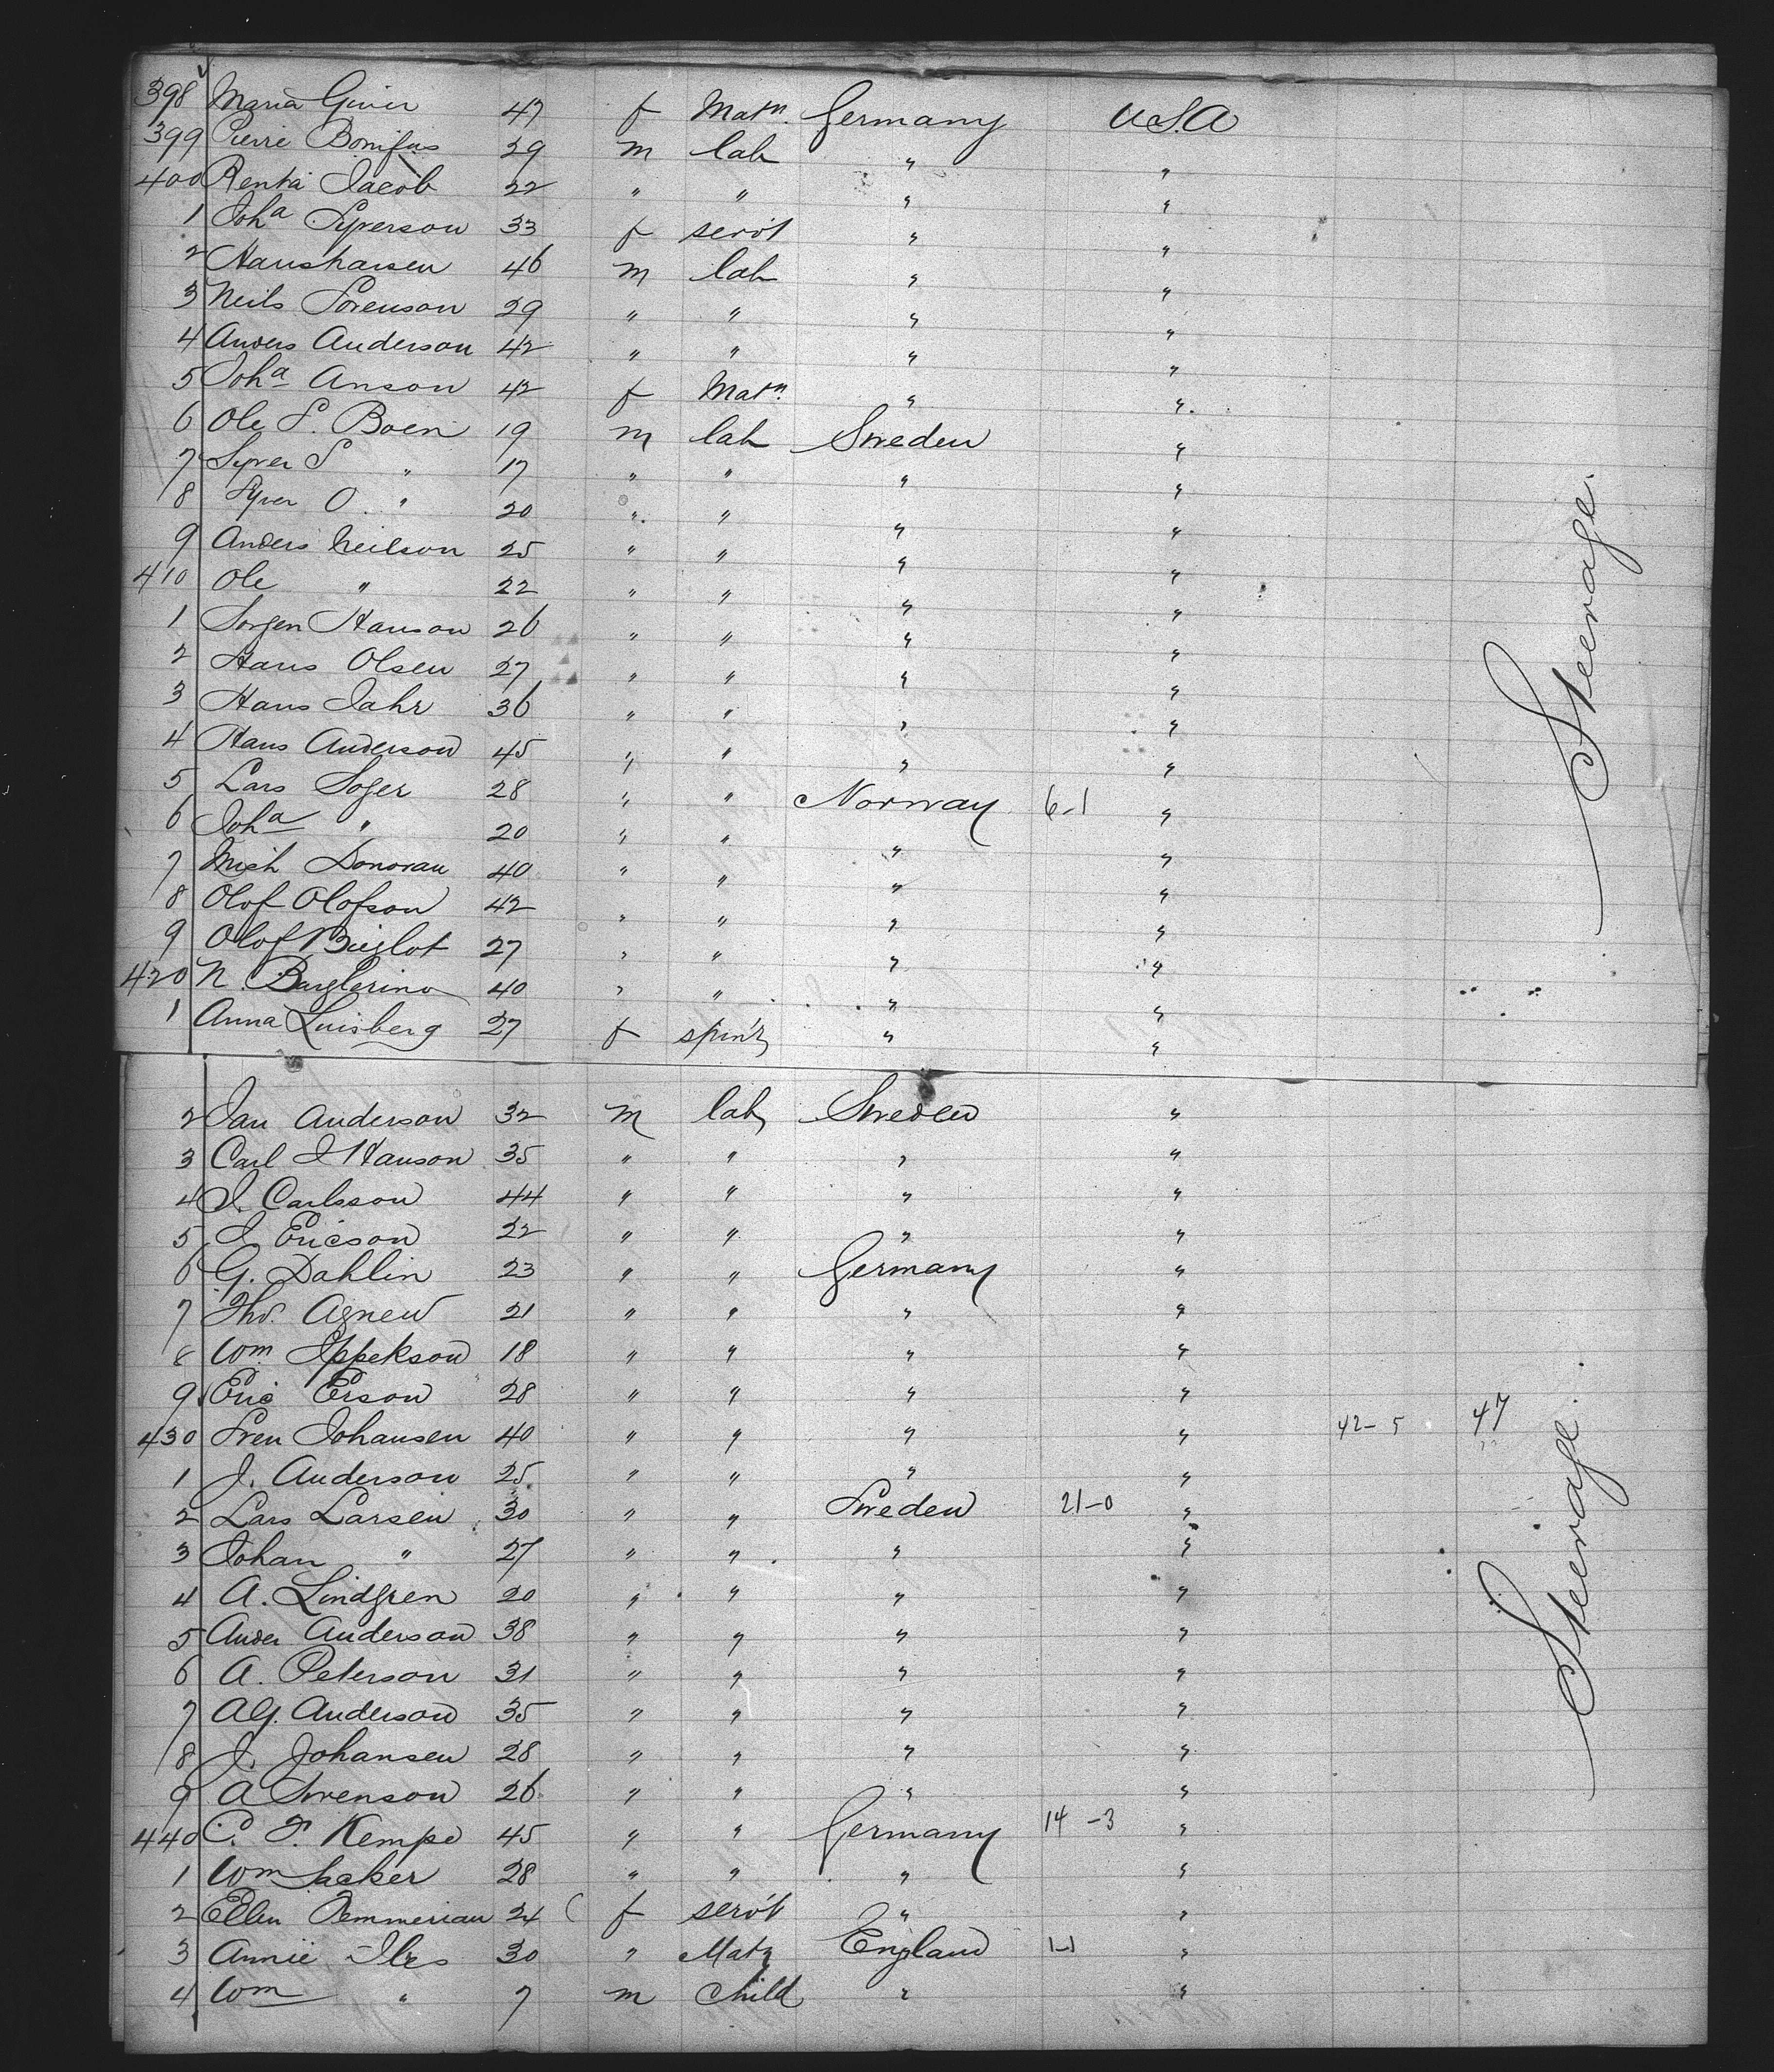 398 Maria Giver 47 f Matn. Germany USA
399 Pierre Bonifus 29 m lab " "
400 Jacob 22 " " " "
1 Joha Syverson 33 f servt " "
2 Hanshansen 46 m lab " "
3 Neils Sorenson 29 " " " "
4 Anders Anderson 42 " " " "
5 Joha Anson 42 f Matn. " "
6 Ole S. Boen 19 m lab Sweden "
7 Syver S " 17 " " " "
8 Syver O. " 20 " " " "
9 Anders Neilson 25 " " " "
410 Ole " 22 " " " "
1 Sorgen Hanson 26 " " " "
2 Hans Olsen 27 " " " "
3 Hans Jahr 36 " " " "
4 Hans Anderson 45 " " " "
5 Lars Soger 28 " " Norway 6-1 "
6 Joha " 20 " " " "
7 Mich Donovan 40 " " " "
8 Olof Olofson 42 " " " "
9 Olof 27 " " " "
420 N. 40 " " " "
1 Anna Luisberg 27 f spinr " "
Steerage.
2 Jan Anderson 32 m lab Sweden "
3 Carl J Hanson 35 " " " "
4 J. Carlsson 44 " " " "
5 J. Ericson 22 " " " "
6 G. Dahlin 23 " " Germany "
7 Thos. Agnew 21 " " " "
8 Wm Ippekson 18 " " " "
9 Eric Erson 28 " " " "
430 Sven Johansen 40 " " " " 42-5 47
1 J. Anderson 25 " " " "
2 Lars Larsen 30 " " Sweden 21-0 "
3 Johan " 27 " " " "
4 A. Lindgren 20 " " " "
5 Ander Anderson 38 " " " "
6 A. Peterson 31 " " " "
7 A.G. Anderson 35 " " " "
8 J. Johansen 28 " " " "
9 A Svenson 26 " " " "
440 C. F. Kempe 45 " " Germany 14-3 "
1 Wm Sacker 28 " " " "
2 Ellen 24 f servt " "
3 Annie Iles 30 " Matn England 1-1 "
4 Wm " 7 m child " "
Steerage.